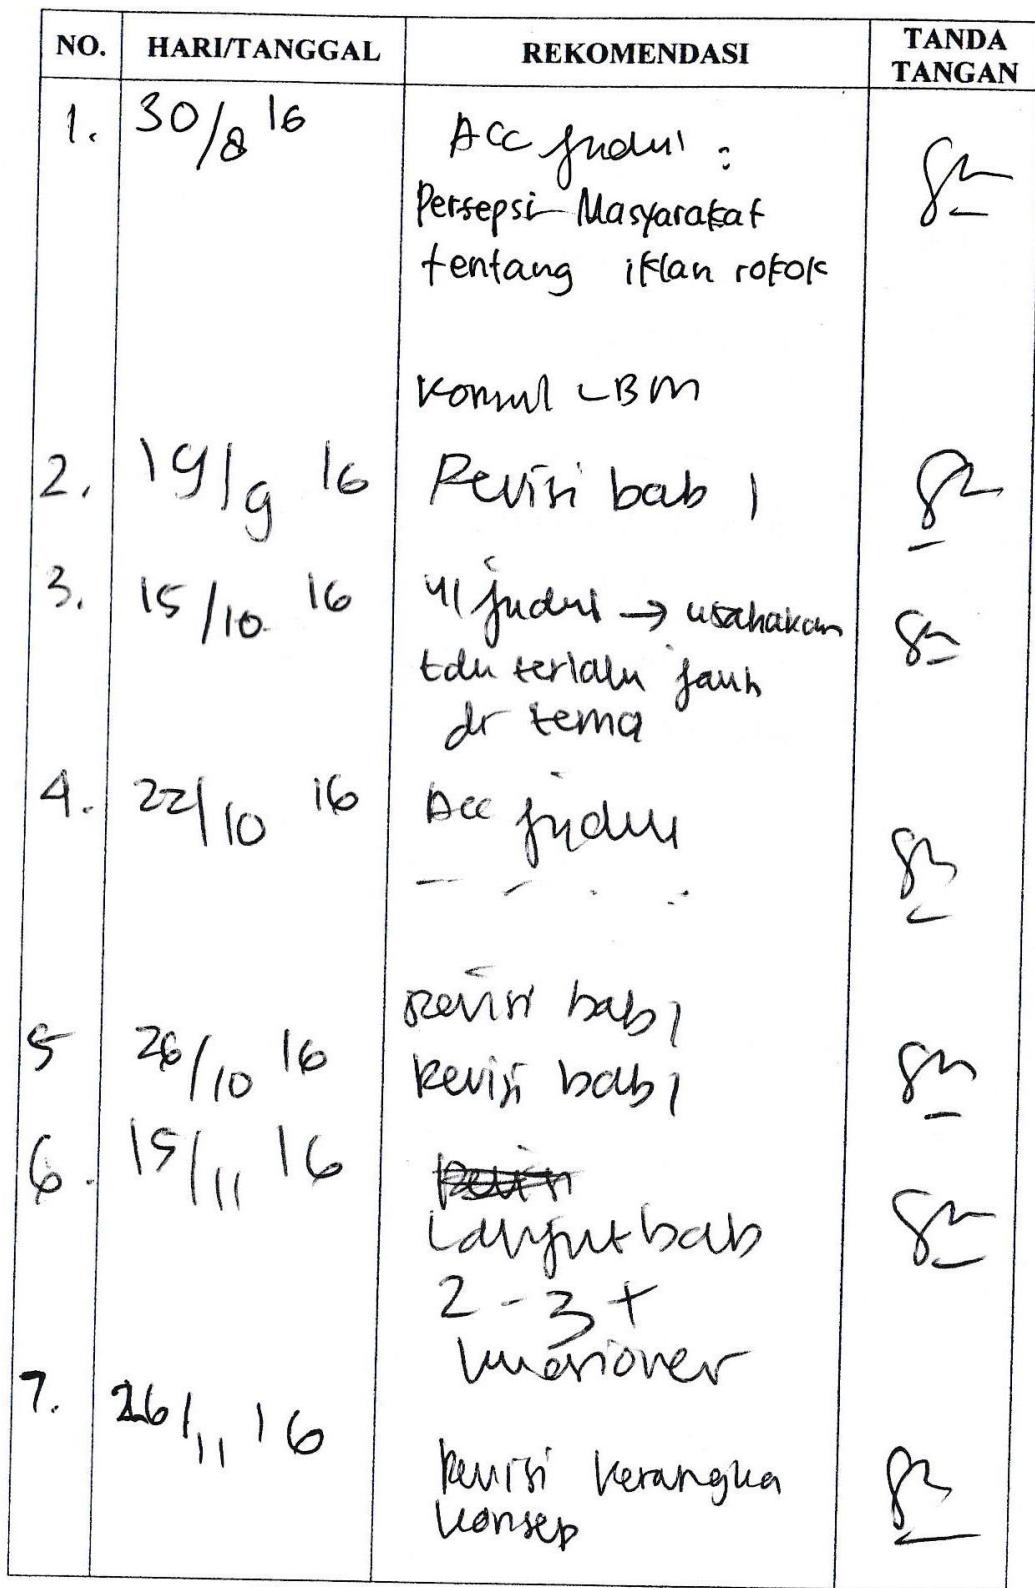 NO. HARI/TANGGAL REKOMENDASI TANDA TANGAN
1. 30/8 16 Acc judul :
Persepsi Masyarakat
tentang iklan rokok
Konsul LBM
2. 19/9 16 Revisi bab 1
3. 15/10 16 judul → usahakan
terlalu jauh
dr tema
4. 22/10 16 Acc judul
Revisi bab 1
5 26/10 16 Revisi bab 1
6. 15/11 16
Lanjut bab
2 - 3 +
kuesioner
7. 26/11 16
Revisi kerangka
konsep